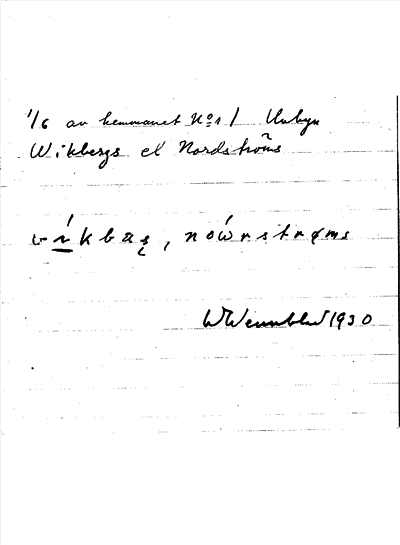 1/6 av hemmanet No 1 Unbyn
Wikbergs el Nordströms
nówrstrøms
W Wennblad 1930